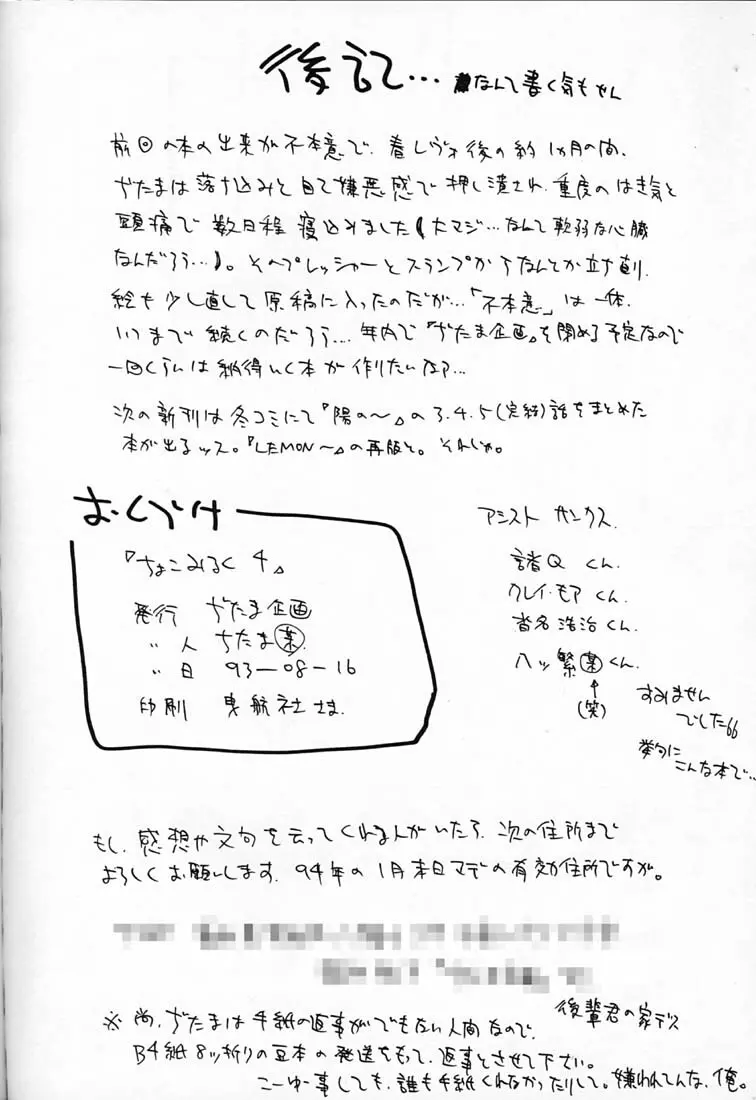 後記… なんて書く気もせん
前回の本の出来が不本意で、春レヴォ後の約1カ月の間、
ぢたまは落ち込みと自己嫌悪感で押し潰され、重度のはき気と
頭痛で数日程寝込みました(大マジ…なんて軟弱な心臓
なんだろう…)。そのプレッシャーとスランプからなんとか立ち直り、
絵も少し直して原稿に入ったのだが…「不本意」は一体、
いつまで続くのだろう…。年内で『ぢたま企画』を閉める予定なので
一回くらいは納得いく本が作りたいなア…
次の新刊は冬コミにて『陽の〜』の3.4.5(完結)話をまとめた
本が出るッス。『LEMON〜』の再版と。それしか。
おくづけ
『ちょこみるく 4』
発行 ぢたま企画
〃 人 ぢたま某
〃 日 93-08-16
印刷 曳航社さま
アシスト サンクス
諸Q くん
クレイ・モア くん
椎名浩治くん
八ッ繁某くん
↑
(笑)
すみません
でした66
挙句に
こんな本で…
もし、感想や文句を云ってくれる人がいたら、次の住所まで
よろしくお願いします。94年の1月末日マデの有効住所ですが。
後輩君の家デス
※ 尚、ぢたまは手紙の返事がでもない人間なので、
B4紙8ッ折りの豆本の発送をもって、返事とさせて下さい。
こーゆー事しても、誰も手紙くれなかったりして。嫌われてんな、俺。